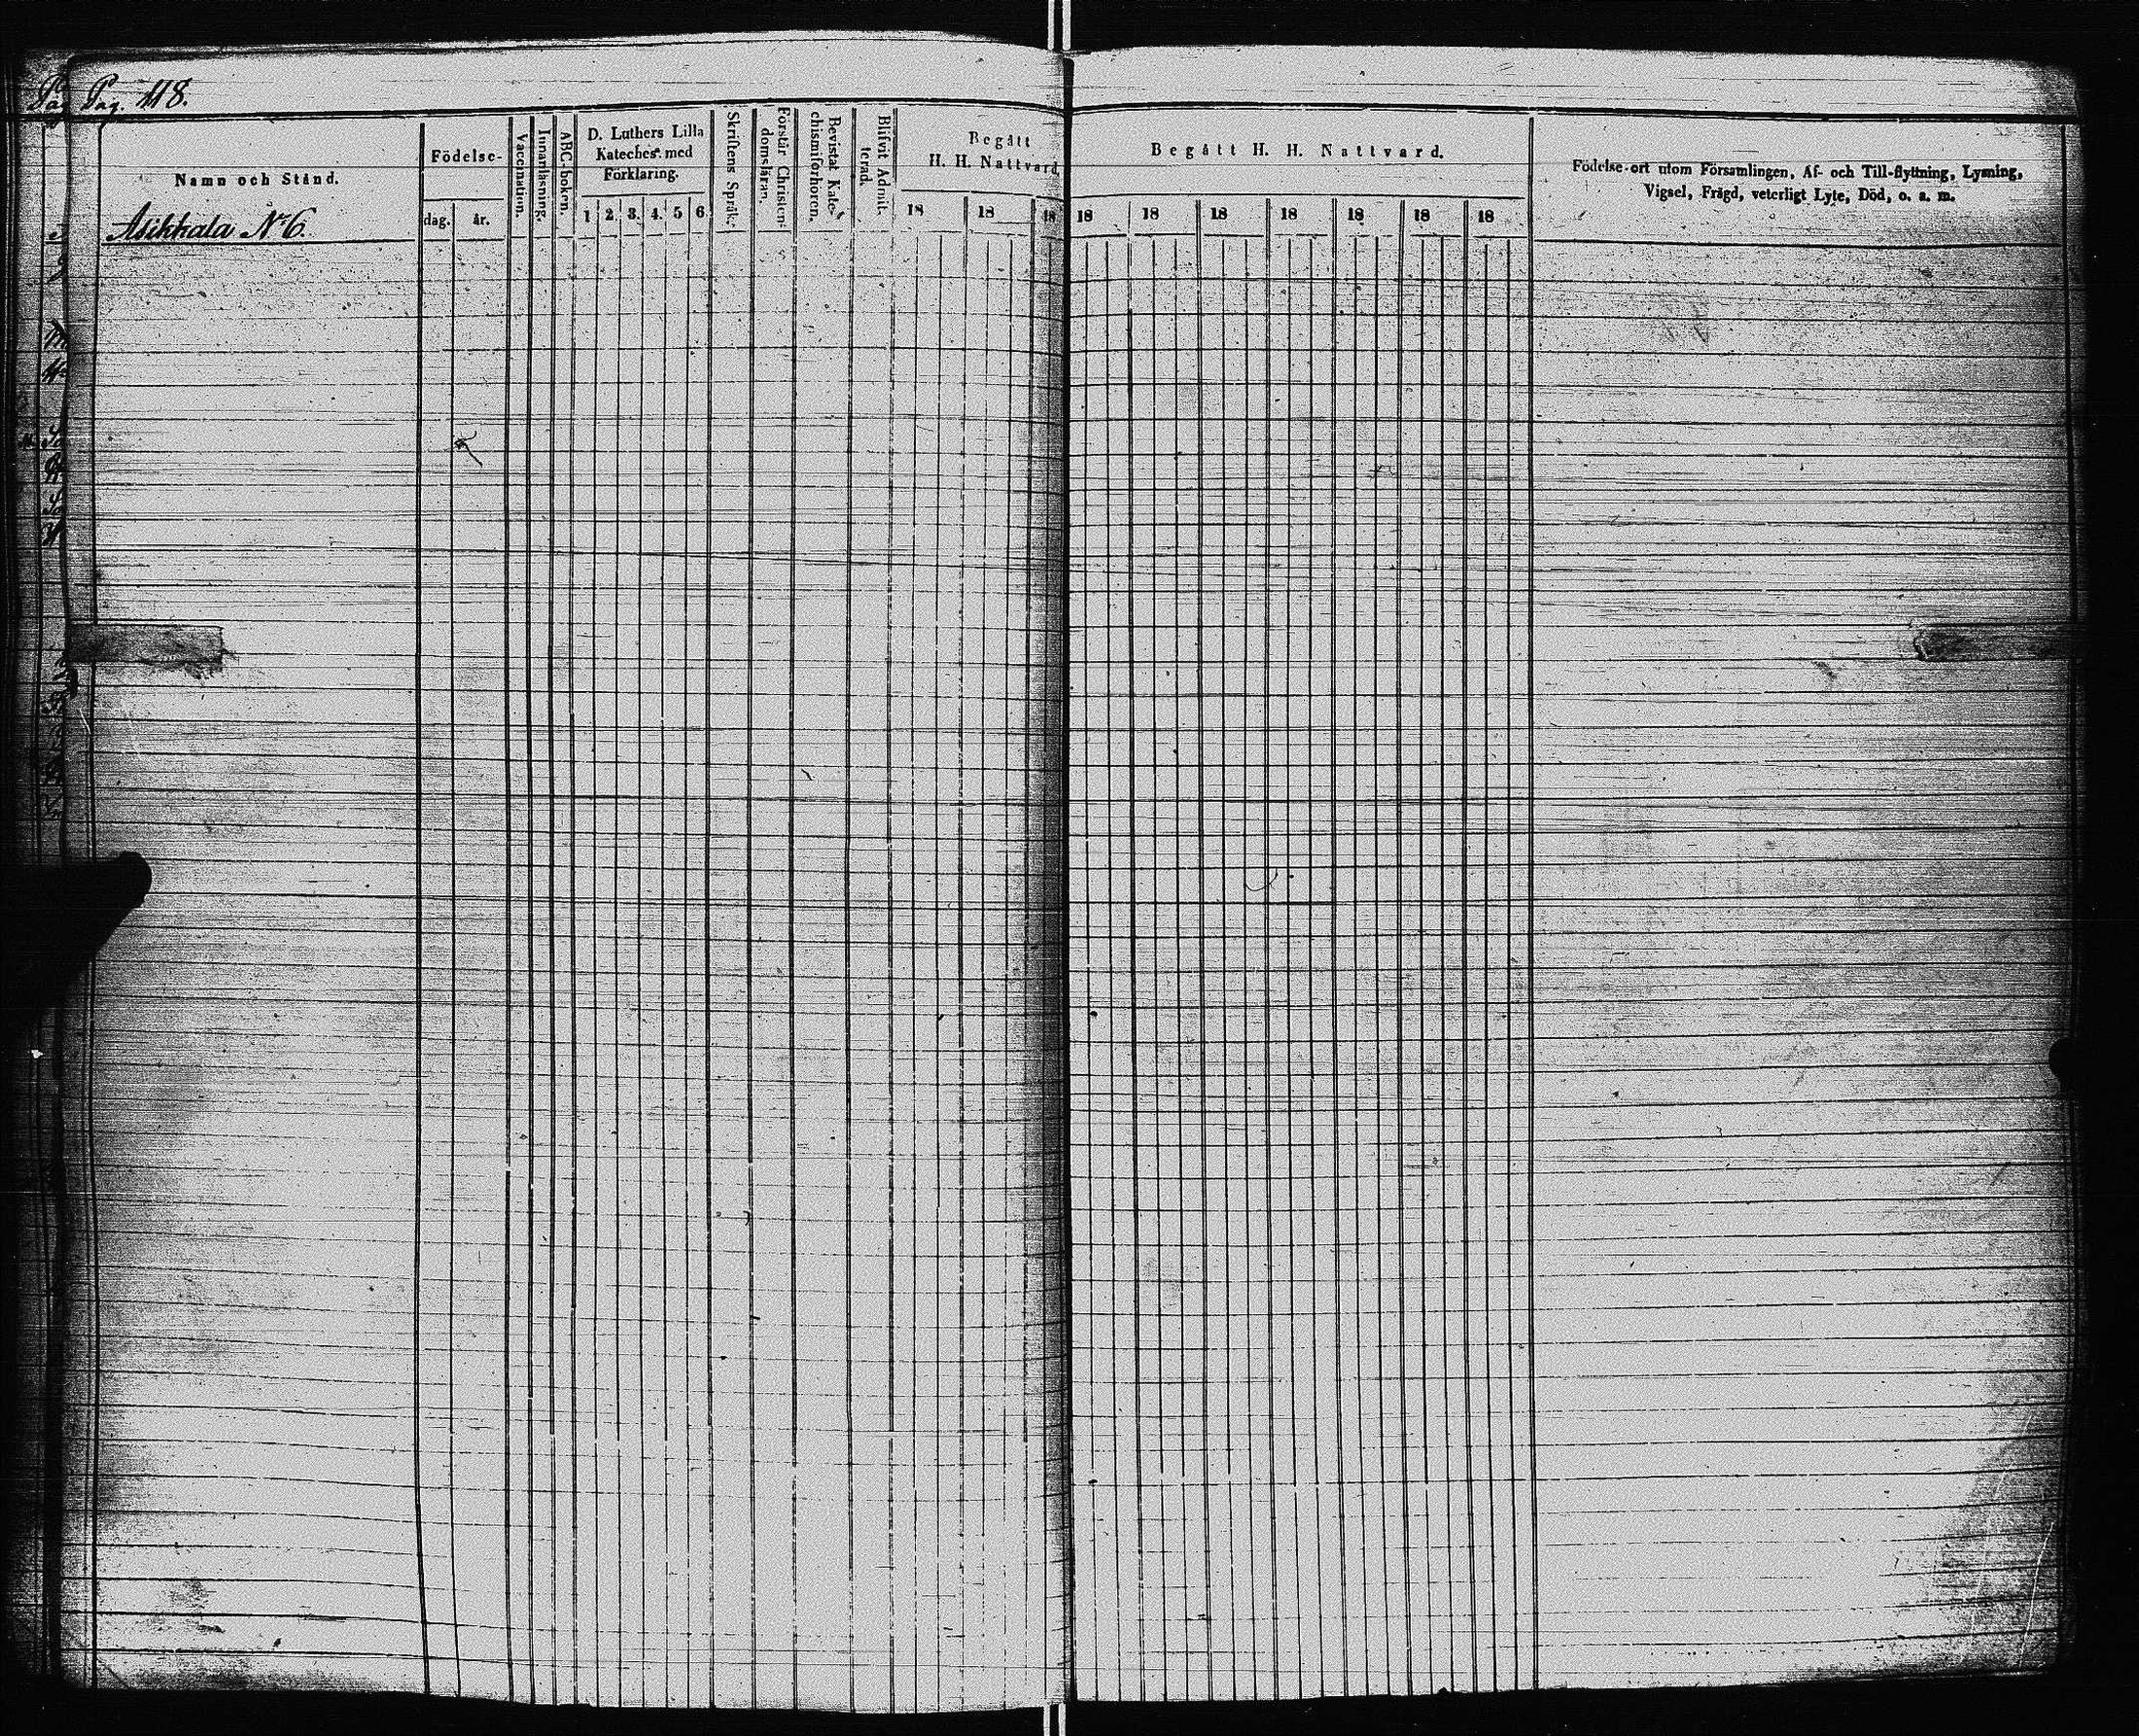 Pag. 118.
Namn och Stånd.
Asikkala No 6.
Födelse-
dag. år.
Vaccination.
Innanläsning.
ABC-boken.
D. Luthers Lilla
Kateches. med
Förklaring.
1 2. 3. 4. 5 6.
Skriftens Språk.
Förstår Christen-
domsläran.
Bevistat Kate-
chismiförhören.
Blifvit Admit-
terad.
Begått
H. H. Nattvard.
18 18 18
Begått H. H. Nattvard.
18 18 18 18 18 18 18
Födelse-ort utom Församlingen, Af- och Till-flyttning, Lysning,
Vigsel, Frägd, veterligt Lyte, Död, o. s. m.